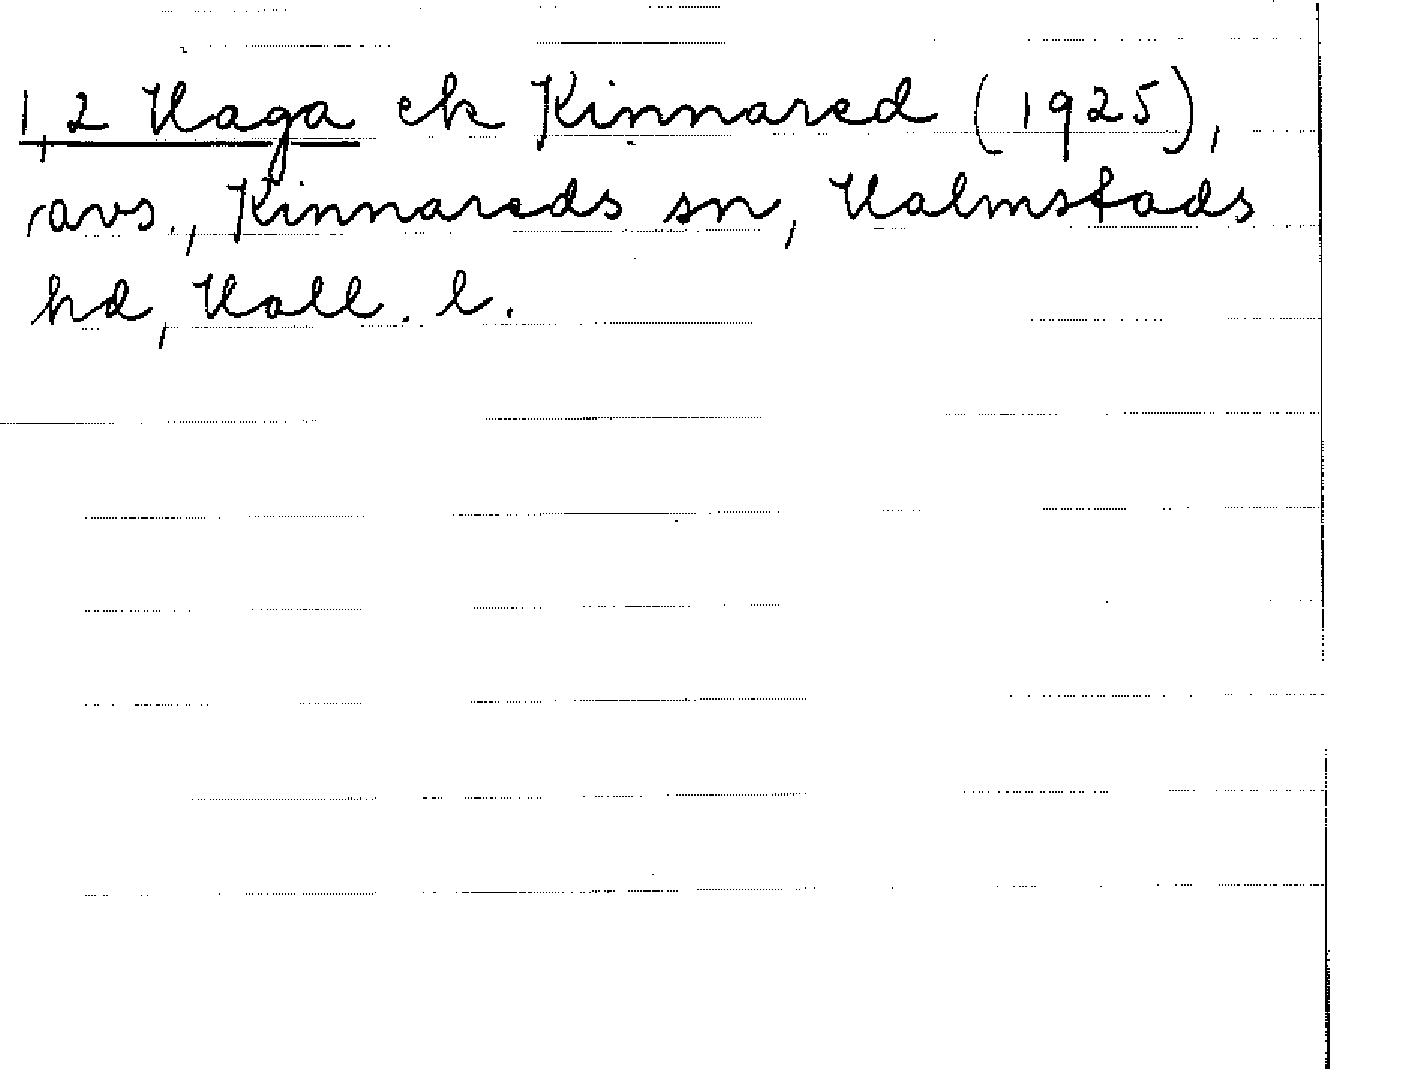 1,2 Haga ek Kinnared (1925),
avs., Kinnareds sn, Halmstads
hd, Hall. l.